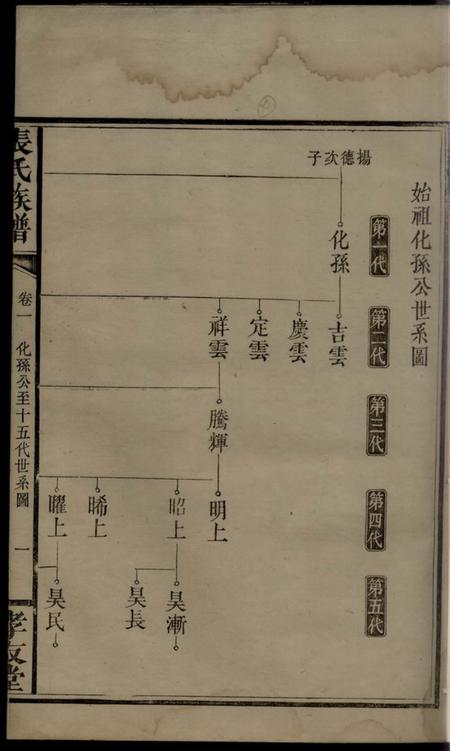 始祖化孫公世系圖
第一代
第二代
第三代
第四代
第五代
揚德次子
化孫
吉雲
慶雲
定雲
祥雲
騰輝
明上
昭上
晞上
曜上
昊漸
昊長
昊民
張氏族譜
卷一
化孫公至十五代世系圖
一
孝友堂